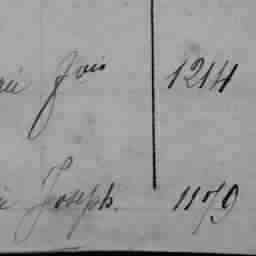 Jois 1214
Joseph. 1179